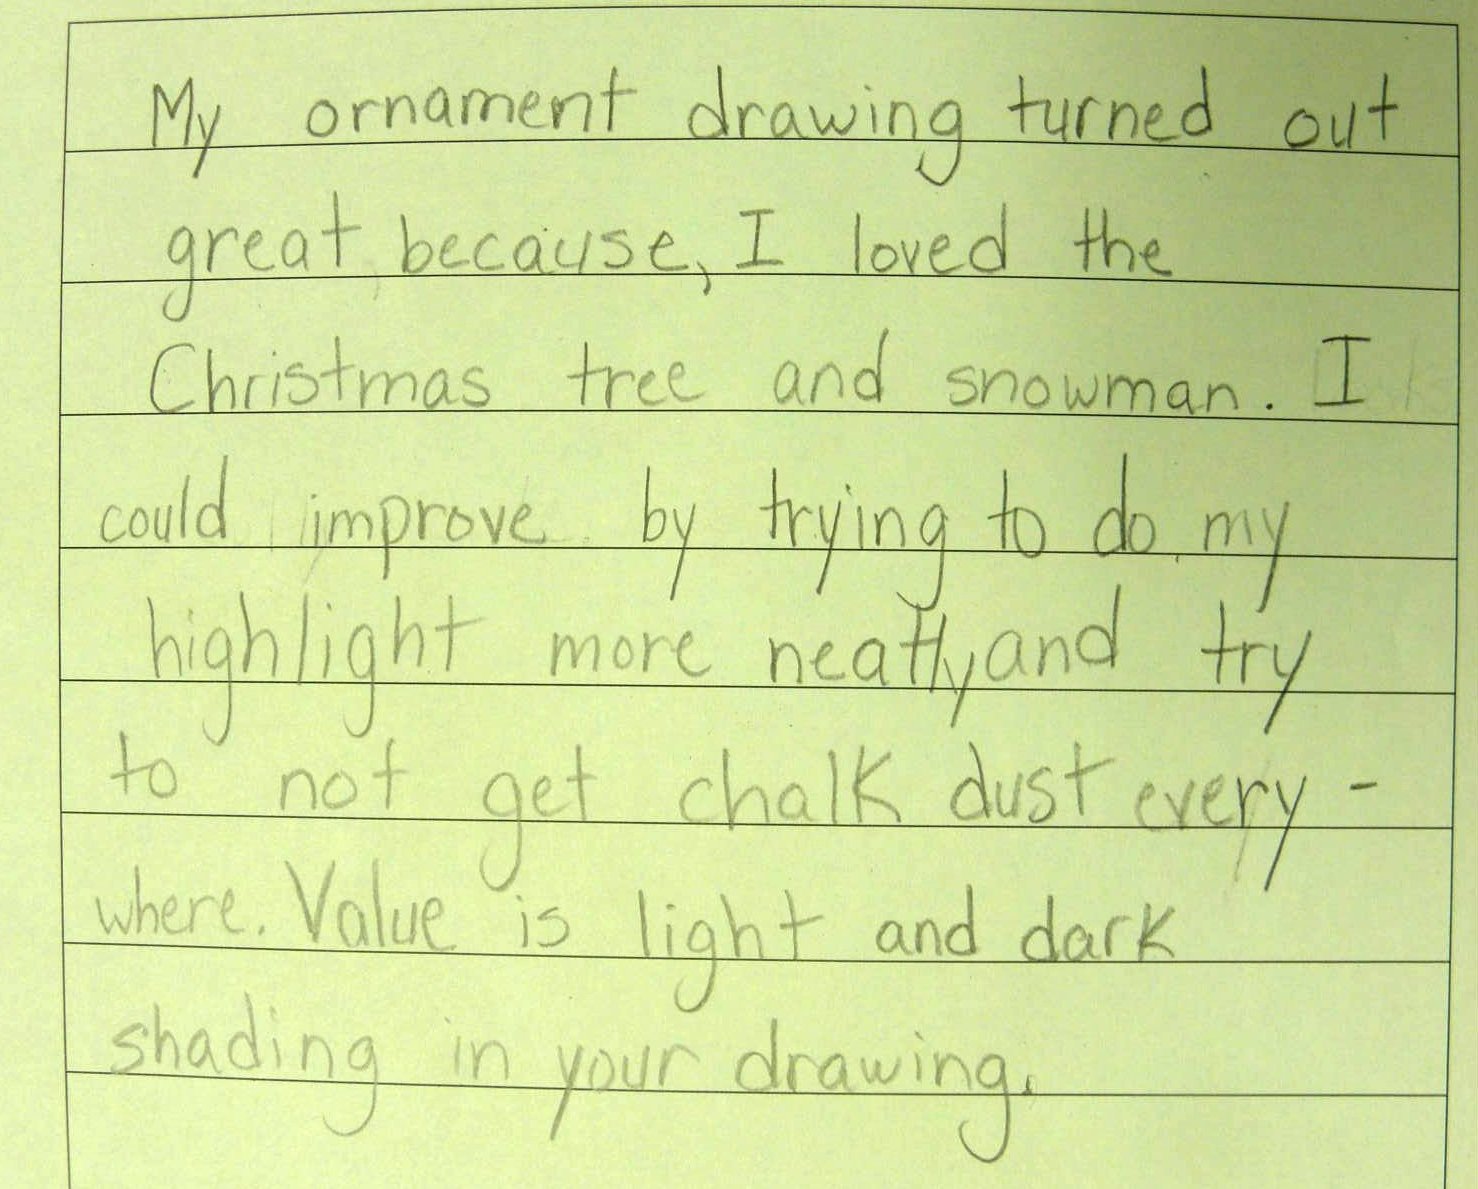 My ornament drawing turned out
great because, I loved the
Christmas tree and snowman. I
could improve by trying to do my
highlight more neatly and try
to not get chalk dust every-
where. Value is light and dark
shading in your drawing.